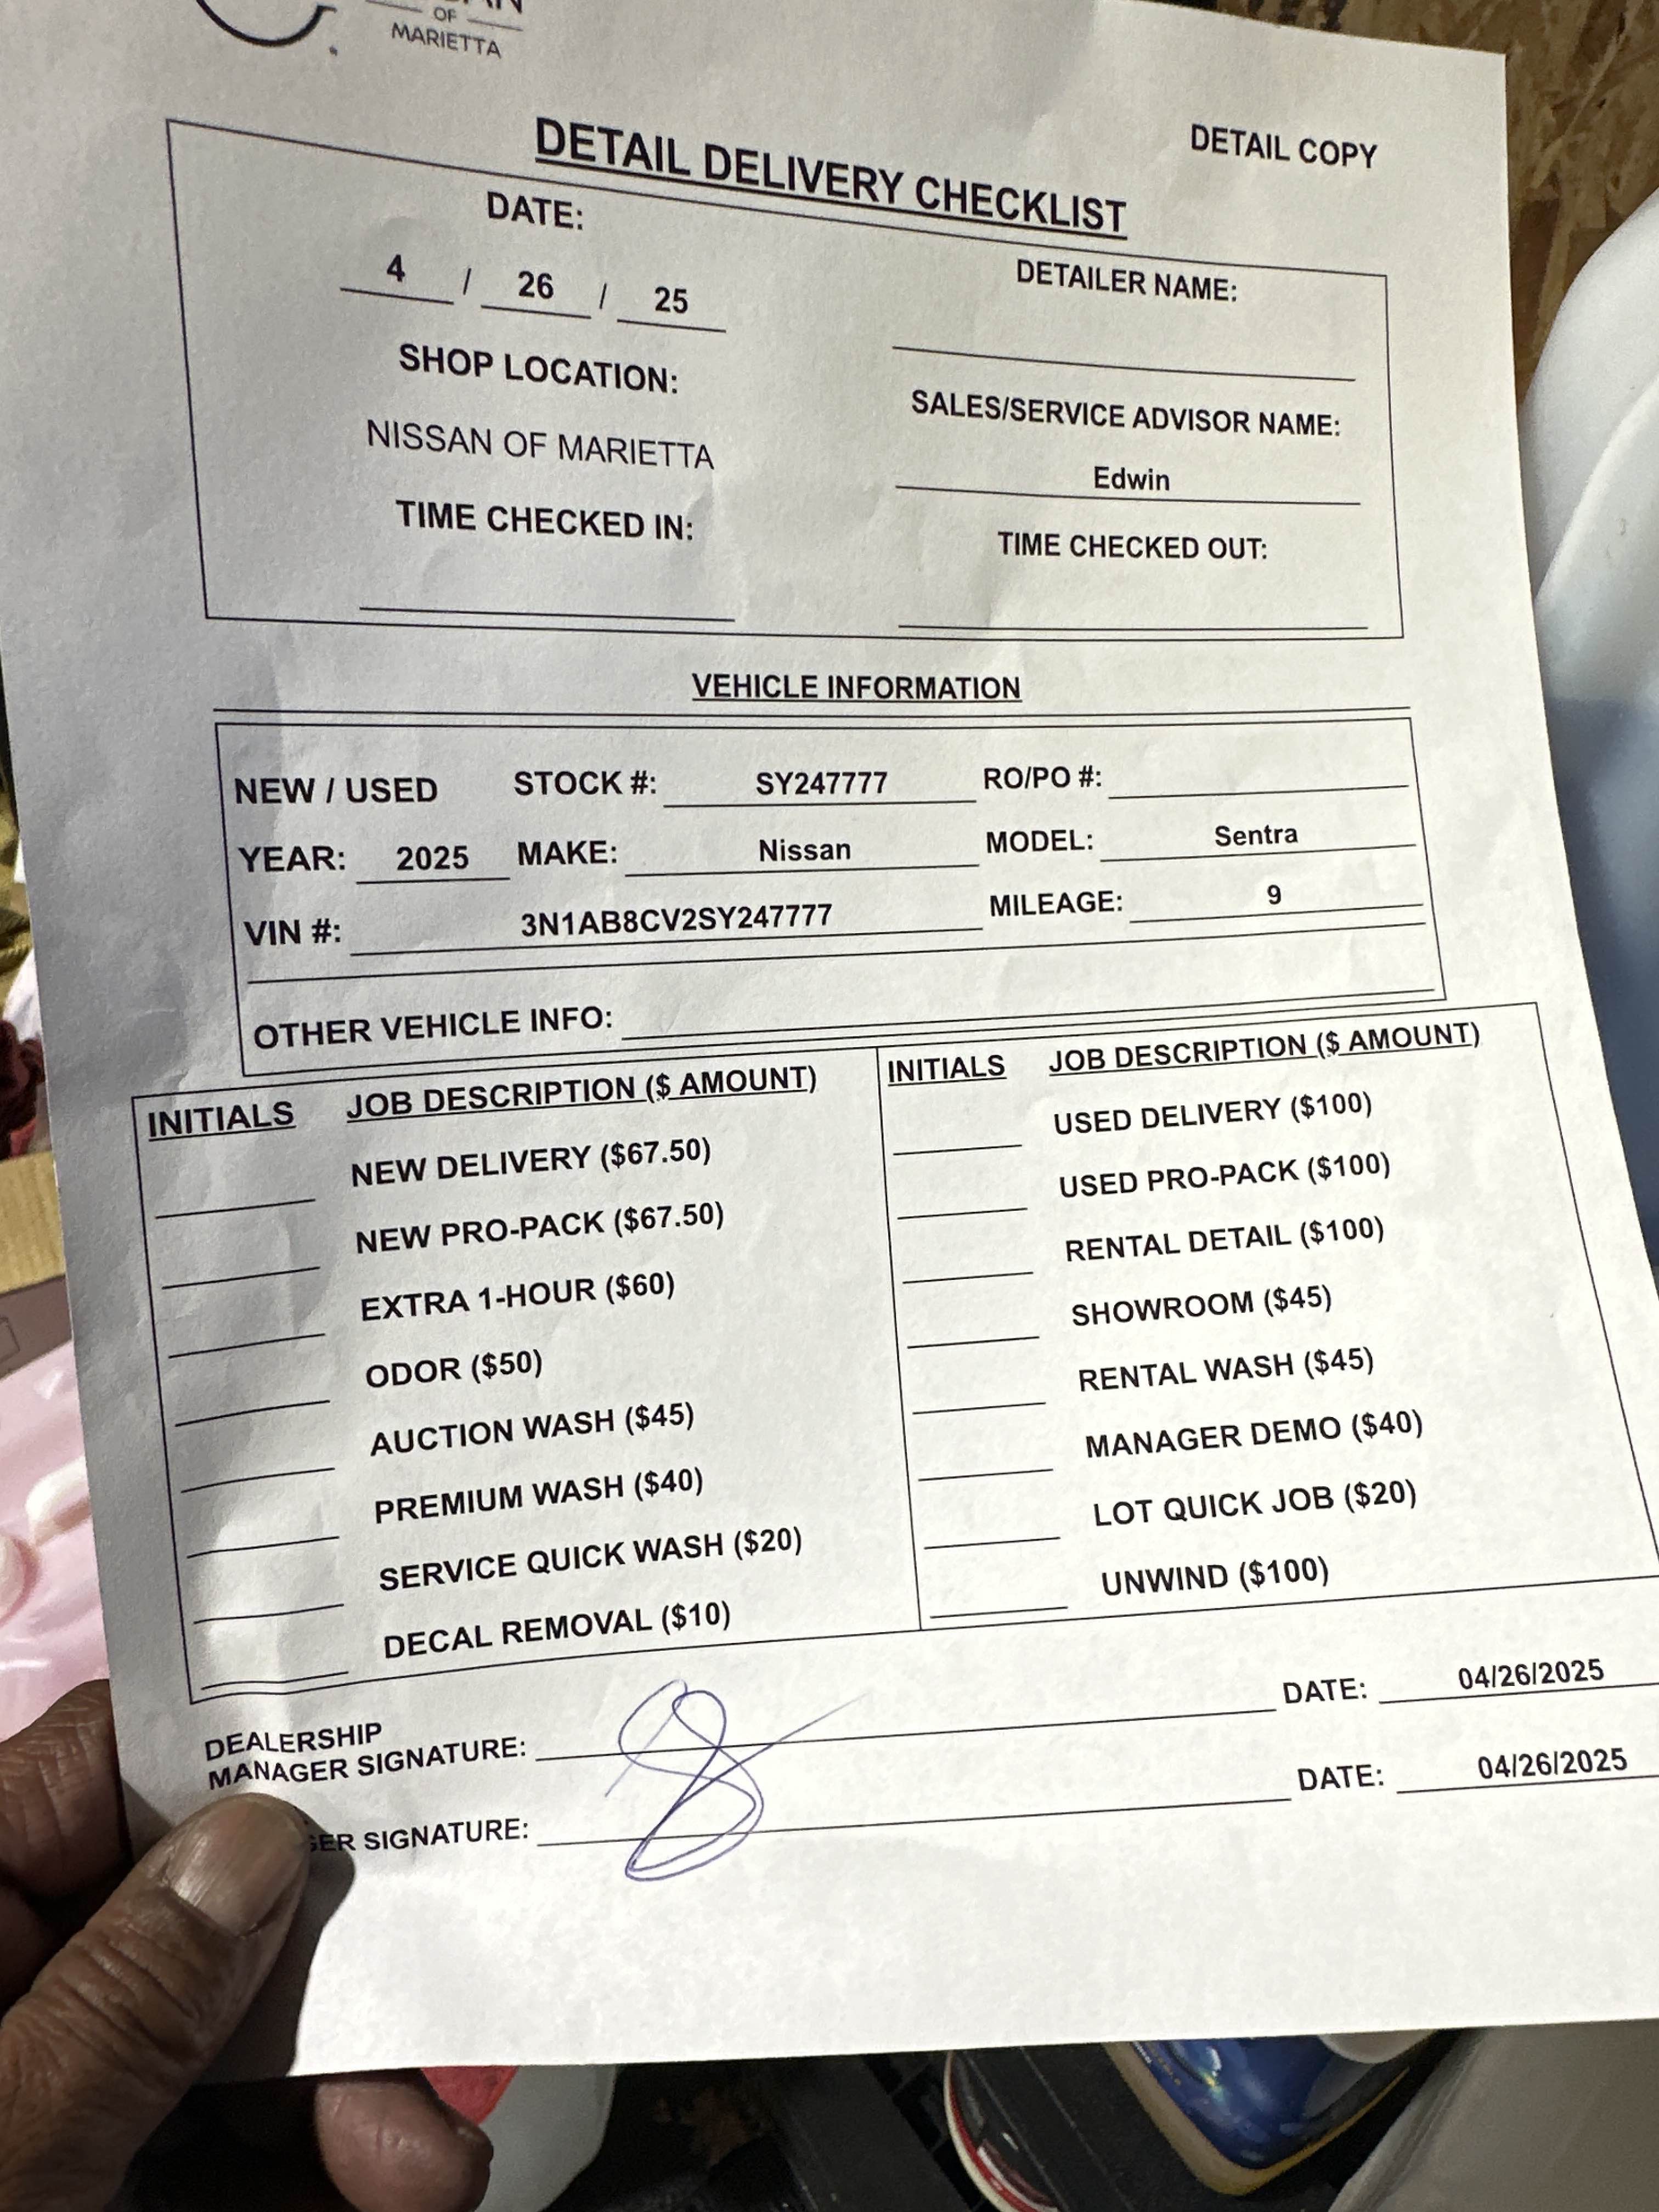 OF
MARIETTA
DETAIL COPY
DETAIL DELIVERY CHECKLIST
DATE:
4 / 26 / 25
DETAILER NAME:
SHOP LOCATION:
NISSAN OF MARIETTA
SALES/SERVICE ADVISOR NAME:
Edwin
TIME CHECKED IN:
TIME CHECKED OUT:
VEHICLE INFORMATION
NEW / USED STOCK #: SY247777 RO/PO #:
YEAR: 2025 MAKE: Nissan MODEL: Sentra
VIN #: 3N1AB8CV2SY247777 MILEAGE: 9
OTHER VEHICLE INFO:
INITIALS JOB DESCRIPTION ($ AMOUNT)
NEW DELIVERY ($67.50)
NEW PRO-PACK ($67.50)
EXTRA 1-HOUR ($60)
ODOR ($50)
AUCTION WASH ($45)
PREMIUM WASH ($40)
SERVICE QUICK WASH ($20)
DECAL REMOVAL ($10)
INITIALS JOB DESCRIPTION ($ AMOUNT)
USED DELIVERY ($100)
USED PRO-PACK ($100)
RENTAL DETAIL ($100)
SHOWROOM ($45)
RENTAL WASH ($45)
MANAGER DEMO ($40)
LOT QUICK JOB ($20)
UNWIND ($100)
DEALERSHIP
MANAGER SIGNATURE: DATE: 04/26/2025
SIGNATURE: DATE: 04/26/2025